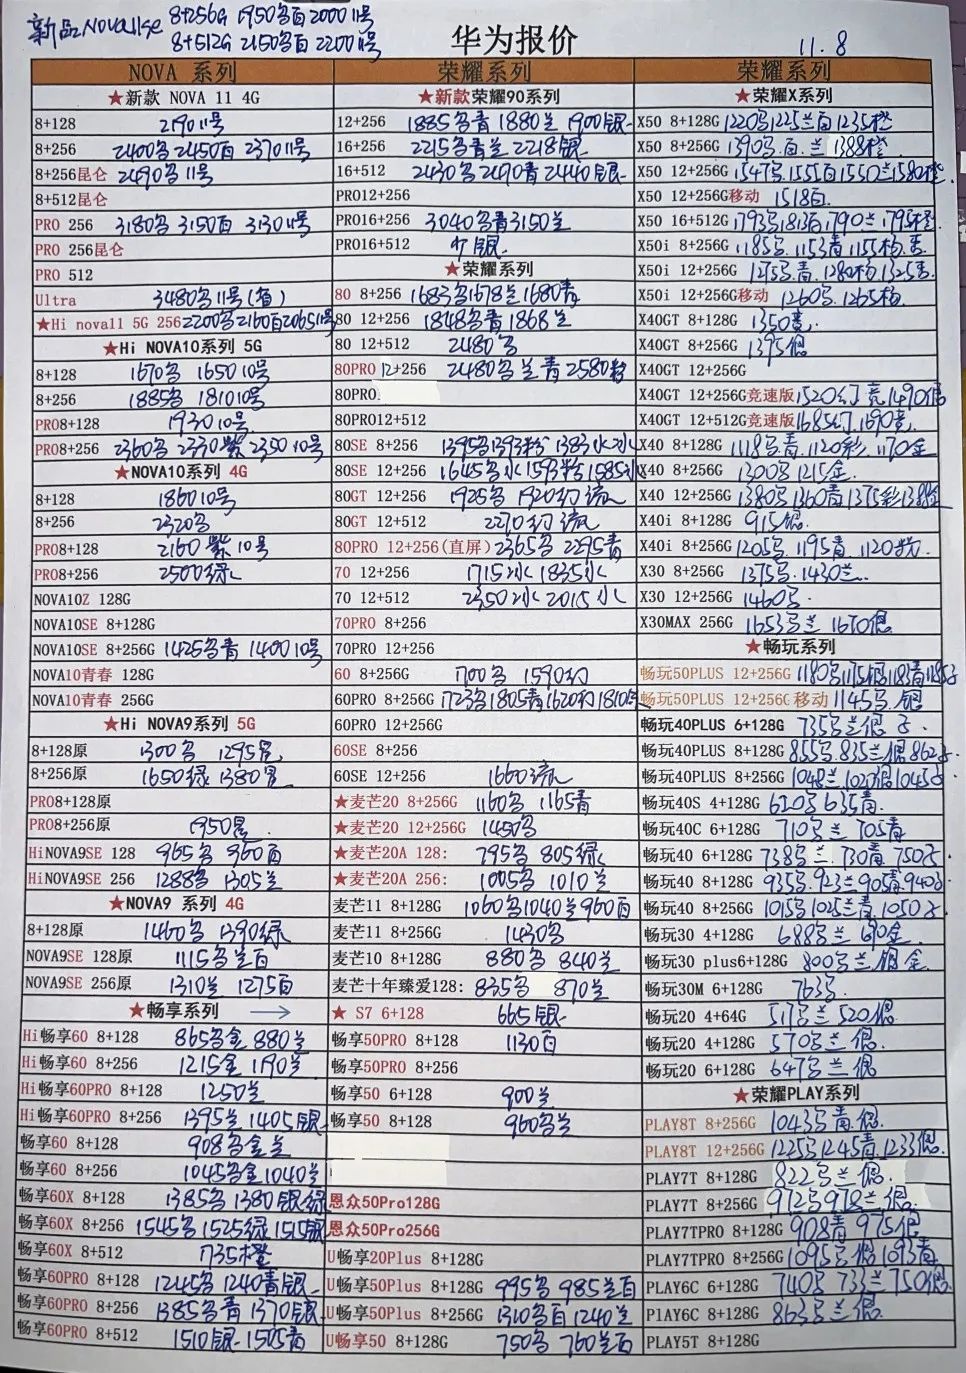 新品NOVA11se 8+256G 1950名百2000 11号
8+512G 2150名百2200 11号
华为报价
11.8
NOVA 系列
★新款 NOVA 11 4G
8+128 2190 11号
8+256 2400名2450百2370 11号
8+256昆仑 2490名11号
8+512昆仑
PRO 256 3180名3150百3130 11号
PRO 256昆仑
PRO 512
Ultra 3480名11号
★Hi nova11 5G 256 2200名2160百2065 11号
★Hi NOVA10系列 5G
8+128 1670名 1650 10号
8+256 1885名 1810 10号
PRO8+128 1930 10号
PRO8+256 2360名2330紫2350 10号
★NOVA10系列 4G
8+128 1860 10号
8+256 2320名
PRO8+128 2160紫10号
PRO8+256 2500绿
NOVA10Z 128G
NOVA10SE 8+128G
NOVA10SE 8+256G 1425名青1400 10号
NOVA10青春 128G
NOVA10青春 256G
★Hi NOVA9系列 5G
8+128原 1300名 1295黑
8+256原 1650绿 1380黑
PRO8+128原
PRO8+256原 1950黑
HiNOVA9SE 128 965名 960百
HiNOVA9SE 256 1288名 1305兰
★NOVA9 系列 4G
8+128原 1460名 1390绿
NOVA9SE 128原 1115名兰百
NOVA9SE 256原 1310兰 1275百
★畅享系列 →
Hi畅享60 8+128 865名金880兰
Hi畅享60 8+256 1215金 1190兰
Hi畅享60PRO 8+128 1250兰
Hi畅享60PRO 8+256 1395兰1405银
畅享60 8+128 908名金兰
畅享60 8+256 1045名金1040兰
畅享60X 8+128 1385名1380银绿
畅享60X 8+256 1545名1525绿1515银
畅享60X 8+512 1735橙
畅享60PRO 8+128 1245名1240青银
畅享60PRO 8+256 1385名青1370银
畅享60PRO 8+512 1510银1505青
荣耀系列
★新款荣耀90系列
12+256 1885名青1880兰1900银
16+256 2215名青兰2218银
16+512 2430名2490青2440银
PRO12+256
PRO16+256 3040名青3150兰
PRO16+512 银
★荣耀系列
80 8+256 1683名1678兰1680青
80 12+256 1848名青1868兰
80 12+512 2480名
80PRO 12+256 2480名兰青2580粉
80PRO
80PRO12+512
80SE 8+256 1395名1393粉1383水
80SE 12+256 1645名水1593粉1585水
80GT 12+256 1925名 1920幻流
80GT 12+512 2270幻流
80PRO 12+256(直屏) 2365名2295青
70 12+256 1715冰1835水
70 12+512 2350冰2015水
70PRO 8+256
70PRO 12+256
60 8+256G 1700名 1590幻
60PRO 8+256G 1723名1805青1620幻1810绿
60PRO 12+256G
60SE 8+256
60SE 12+256 1660流
★麦芒20 8+256G 1160名 1165青
★麦芒20 12+256G 1450名
★麦芒20A 128: 795名 805绿
★麦芒20A 256: 1005名 1010兰
麦芒11 8+128G 1060名1040兰960百
麦芒11 8+256G 1430名
麦芒10 8+128G 880名 840兰
麦芒十年臻爱128: 835名 870兰
★ S7 6+128 665银
畅享50PRO 8+128 1130百
畅享50PRO 8+256
畅享50 6+128 900兰
畅享50 8+128 960名兰
恩众50Pro128G
恩众50Pro256G
U畅享20Plus 8+128G
U畅享50Plus 8+128G 995名985兰百
U畅享50Plus 8+256G 1310名百1240兰
U畅享50 8+128G 750名 760兰百
荣耀系列
★荣耀X系列
X50 8+128G 1220名1225兰百1235橙
X50 8+256G 1390名.百.兰1388橙
X50 12+256G 1547名1555百1550兰1580橙
X50 12+256G移动 1518百
X50 16+512G 1793名1813百1790兰1795橙
X50i 8+256G 1185名.1153青1155杨.
X50i 12+256G 1275名.青.1280杨1325
X50i 12+256G移动 1260名.1265杨
X40GT 8+128G 1350
X40GT 8+256G 1395银
X40GT 12+256G
X40GT 12+256G竞速版 1520幻竞1490银
X40GT 12+512G竞速版 1685幻.1690竞
X40 8+128G 1118名.青.1120彩.1170金
X40 8+256G 1300名1215金
X40 12+256G 1380名1360青1375彩1388金
X40i 8+128G 915银
X40i 8+256G 1205名.1195青.1120粉
X30 8+256G 1375名.1430兰
X30 12+256G 1460名
X30MAX 256G 1653名兰1670银
★畅玩系列
畅玩50PLUS 12+256G 1180名1175银1183青1185
畅玩50PLUS 12+256G 移动 1145名.银
畅玩40PLUS 6+128G 735名兰银
畅玩40PLUS 8+128G 855名835兰银862
畅玩40PLUS 8+256G 1048兰1027银1045
畅玩40S 4+128G 620名635青
畅玩40C 6+128G 710名兰705青
畅玩40 6+128G 738名兰.730青.750
畅玩40 8+128G 935名.923兰905青940
畅玩40 8+256G 1015名1025兰青1050
畅玩30 4+128G 688名兰690金
畅玩30 plus6+128G 800名兰银金
畅玩30M 6+128G 763名
畅玩20 4+64G 517名兰520银
畅玩20 4+128G 570名兰银
畅玩20 6+128G 647名兰银
★荣耀PLAY系列
PLAY8T 8+256G 1043名青银
PLAY8T 12+256G 1225名1245青1233银
PLAY7T 8+128G 822名兰银
PLAY7T 8+256G 972名978兰银
PLAY7TPRO 8+128G 908青975银
PLAY7TPRO 8+256G 1095名银1093青
PLAY6C 6+128G 740名733兰750银
PLAY6C 8+128G 863名兰银
PLAY5T 8+128G